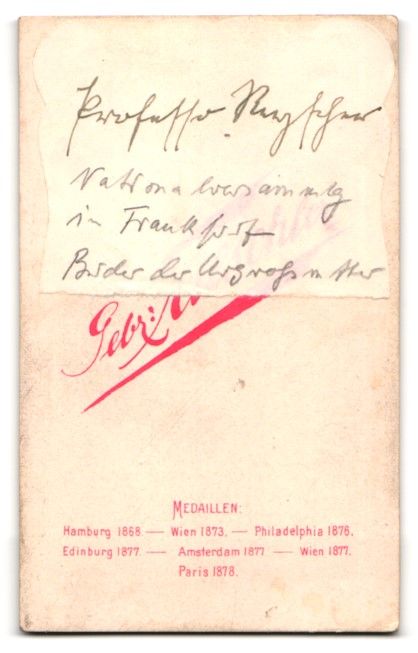 Professor Reyscher
Nationalversammlg
in Frankfurt
Bruder der Urgroßmutter
Gebr:
MEDAILLEN:
Hamburg 1868. — Wien 1873. — Philadelphia 1876.
Edinburg 1877. — Amsterdam 1877 — Wien 1877.
Paris 1878.